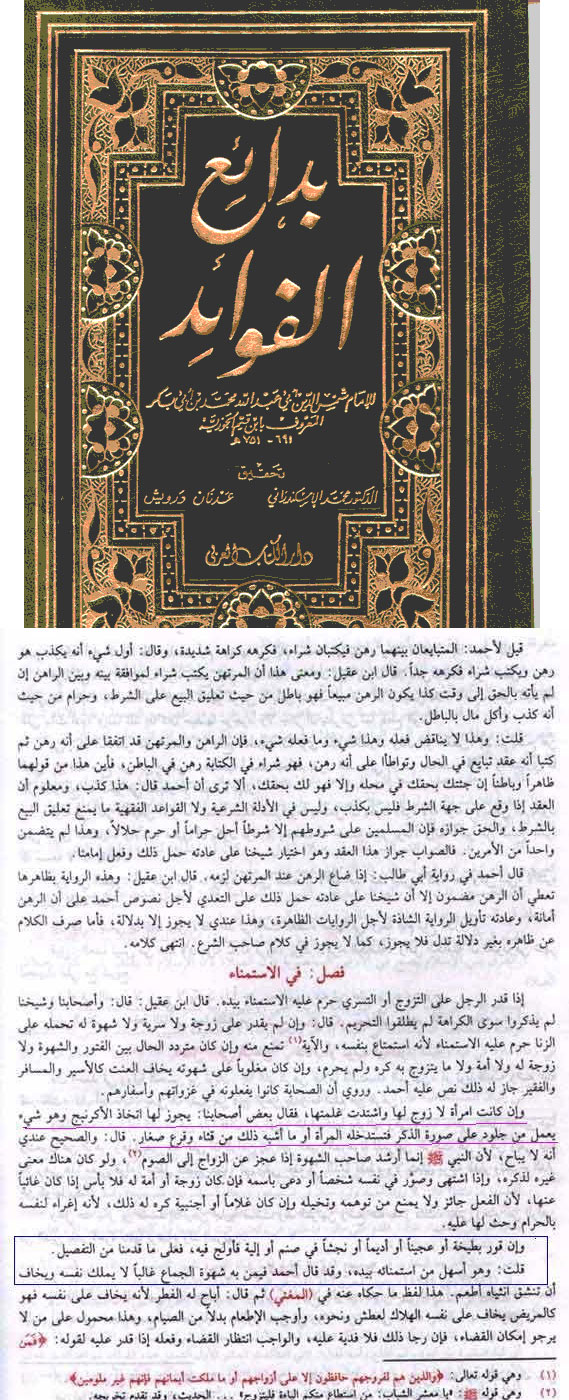 بدائع
الفوائد
للإمام شمس الدين أبي عبد الله محمد بن أبي بكر
المعروف بابن قيم الجوزية
٦٩١ - ٧٥١ هـ
تحقيق
الدكتور محمد الإسكندراني عدنان درويش
دار الكتاب العربي
قيل لأحمد: المتبايعان بينهما رهن فيكتبان شراء، فكرهه كراهة شديدة، وقال: أول شيء أنه يكذب هو
رهن ويكتب شراء فكرهه جداً. قال ابن عقيل: ومعنى هذا أن المرتهن يكتب شراء لموافقة بينه وبين الراهن إن
لم يأته بالحق إلى وقت كذا يكون الرهن مبيعاً فهو باطل من حيث تعليق البيع على الشرط، وحرام من حيث
أنه كذب وأكل مال بالباطل.
قلت: وهذا لا يناقض فعله وهذا شيء وما فعله شيء، فإن الراهن والمرتهن قد اتفقا على أنه رهن ثم
كتبا أنه عقد تبايع في الحال وتواطأا على أنه رهن، فهو شراء في الكتابة رهن في الباطن، فأين هذا من قولهما
ظاهراً وباطناً إن جئتك بحقك في محله وإلا فهو لك بحقك، ألا ترى أن أحمد قال: هذا كذب، ومعلوم أن
العقد إذا وقع على جهة الشرط فليس بكذب، وليس في الأدلة الشرعية ولا القواعد الفقهية ما يمنع تعليق البيع
بالشرط، والحق جوازه فإن المسلمين على شروطهم إلا شرطاً أحل حراماً أو حرم حلالاً، وهذا لم يتضمن
واحداً من الأمرين. فالصواب جواز هذا العقد وهو اختيار شيخنا على عادته حمل ذلك وفعل إمامنا.
قال أحمد في رواية أبي طالب: إذا ضاع الرهن عند المرتهن لزمه. قال ابن عقيل: وهذه الرواية بظاهرها
تعطي أن الرهن مضمون إلا أن شيخنا على عادته حمل ذلك على التعدي لأجل نصوص أحمد على أن الرهن
أمانة، وعادته تأويل الرواية الشاذة لأجل الروايات الظاهرة، وهذا عندي لا يجوز إلا بدلالة، فأما صرف الكلام
عن ظاهره بغير دلالة تدل فلا يجوز، كما لا يجوز في كلام صاحب الشرع. انتهى كلامه.
فصل: في الاستمناء
إذا قدر الرجل على التزوج أو التسري حرم عليه الاستمناء بيده. قال ابن عقيل: قال: وأصحابنا وشيخنا
لم يذكروا سوى الكراهة لم يطلقوا التحريم. قال: وإن لم يقدر على زوجة ولا سرية ولا شهوة له تحمله على
الزنا حرم عليه الاستمناء لأنه استمتاع بنفسه، والآية(١) تمنع منه وإن كان متردد الحال بين الفتور والشهوة ولا
زوجة له ولا أمة ولا ما يتزوج به كره ولم يحرم، وإن كان مغلوباً على شهوته يخاف العنت كالأسير والمسافر
والفقير جاز له ذلك نص عليه أحمد. وروي أن الصحابة كانوا يفعلونه في غزواتهم وأسفارهم.
وإن كانت امرأة لا زوج لها واشتدت غلمتها، فقال بعض أصحابنا: يجوز لها اتخاذ الأكرنبج وهو شيء
يعمل من جلود على صورة الذكر فتستدخله المرأة أو ما أشبه ذلك من قثاء وقرع صغار. قال: والصحيح عندي
أنه لا يباح، لأن النبي ﷺ إنما أرشد صاحب الشهوة إذا عجز عن الزواج إلى الصوم(٢)، ولو كان هناك معنى
غيره لذكره، وإذا اشتهى وصوّر في نفسه شخصاً أو دعى باسمه فإن كان زوجة أو أمة له فلا بأس إذا كان غائباً
عنها، لأن الفعل جائز ولا يمنع من توهمه وتخيله وإن كان غلاماً أو أجنبية كره له ذلك، لأنه إغراء لنفسه
بالحرام وحث لها عليه.
وإن قور بطيخة أو عجيناً أو أديماً أو نجشاً في صنم أو إلية فأولج فيه، فعلى ما قدمنا من التفصيل.
قلت: وهو أسهل من استمنائه بيده، وقد قال أحمد فيمن به شهوة الجماع غالباً لا يملك نفسه ويخاف
أن تنشق أنثياه أطعم. هذا لفظ ما حكاه عنه في (المغني) ثم قال: أباح له الفطر لأنه يخاف على نفسه فهو
كالمريض يخاف على نفسه الهلاك لعطش ونحوه، وأوجب الإطعام بدلاً من الصيام، وهذا محمول على من لا
يرجو إمكان القضاء، فإن رجا ذلك فلا فدية عليه، والواجب انتظار القضاء وفعله إذا قدر عليه لقوله: ﴿فمن
(١) وهي قوله تعالى: ﴿والذين هم لفروجهم حافظون إلا على أزواجهم أو ما ملكت أيمانهم فإنهم غير ملومين﴾.
(٢) وهي قوله ﷺ: «يا معشر الشباب: من استطاع منكم الباءة فليتزوج» ... الحديث، وقد تقدم تخريجه.